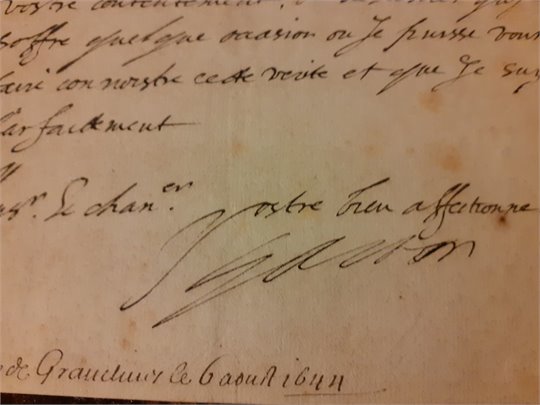 vostre contentement
offre quelque occasion ou Je puisse vous
faire connoistre cette verite et que Je suy
parfaitement
Mr. Le chan.er Vostre bien affectionne
Gaston
de Gravelines le 6 aoust 1644